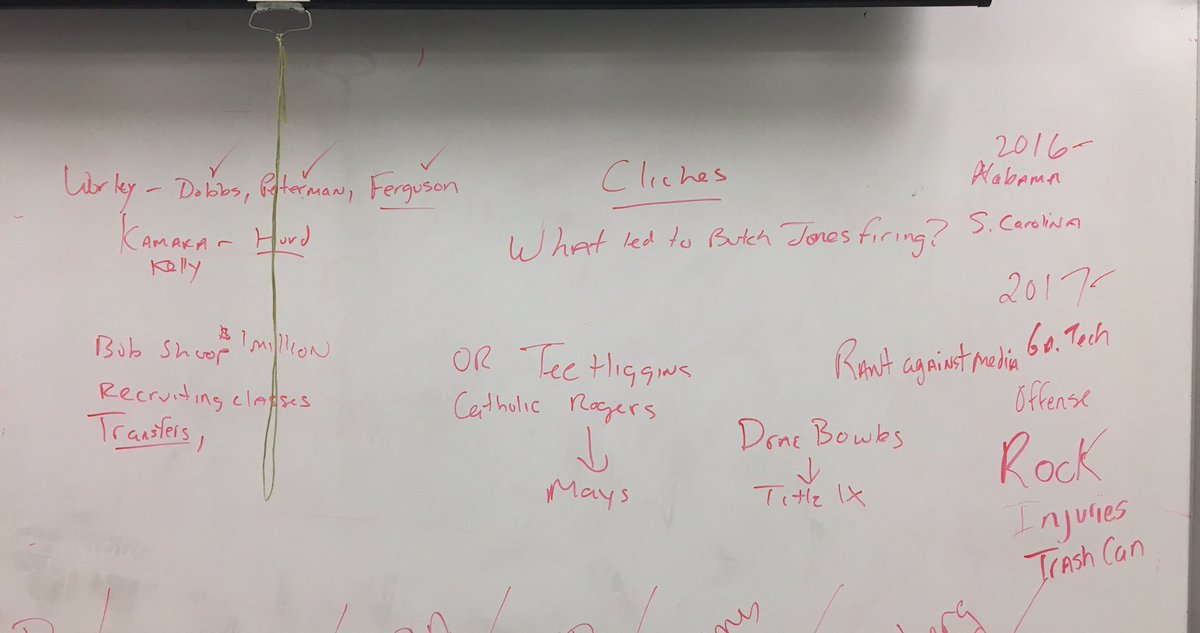 Worley - Dobbs, Peterman, Ferguson
Kamara - Hurd
Kelly
Bob Shoop $1 million
Recruiting classes
Transfers,
Cliches
What led to Butch Jones firing?
OR Tee Higgins
Catholic Rogers
Mays
Title IX
2016-
Alabama
S. Carolina
2017-
Rant against media Ga. Tech
Offense
Rock
Injuries
Trash Can